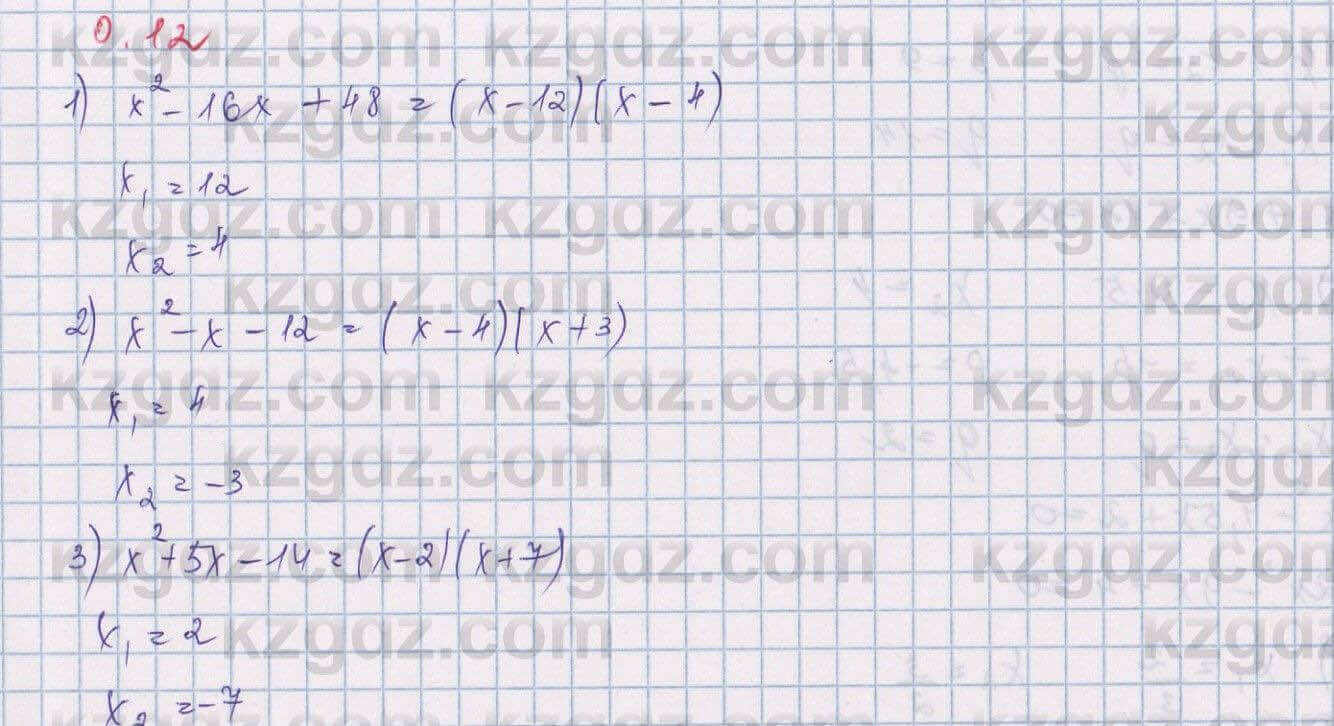 0.12
1) x² - 16x + 48 = (x - 12)(x - 4)
x₁ = 12
x₂ = 4
2) x² - x - 12 = (x - 4)(x + 3)
x₁ = 4
x₂ = -3
3) x² + 5x - 14 = (x - 2)(x + 7)
x₁ = 2
x₂ = -7
kzgdz.com